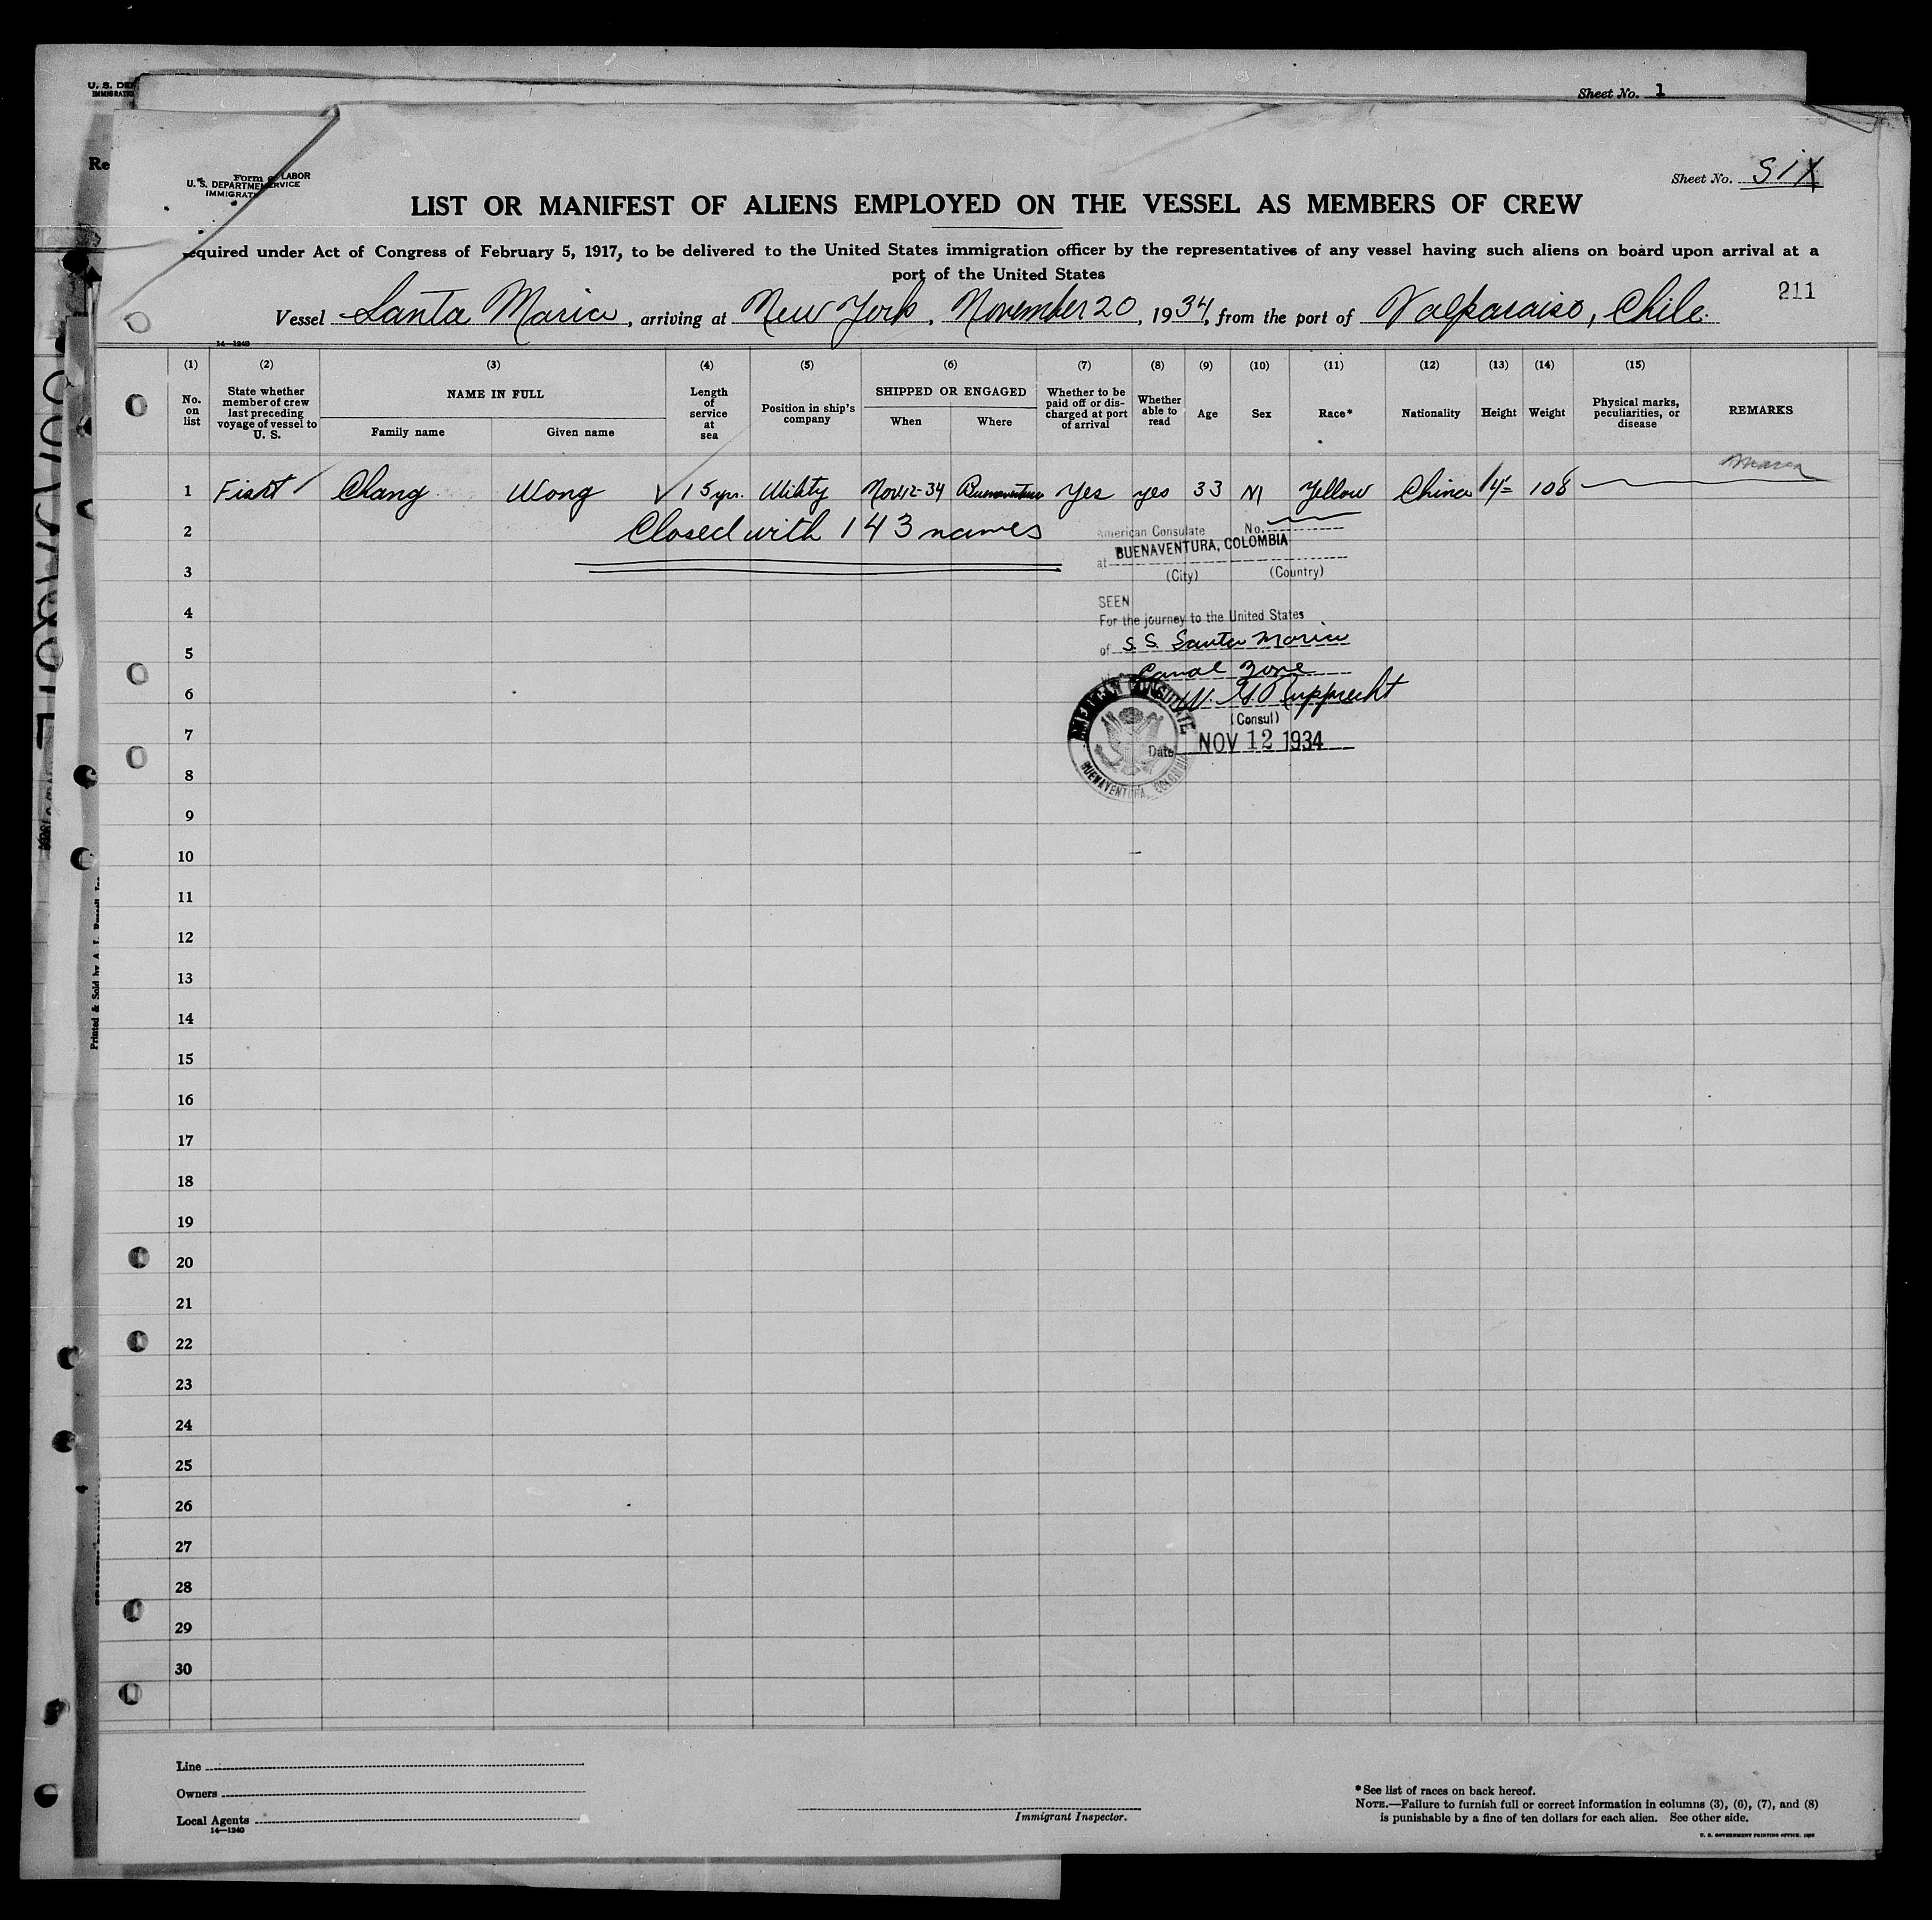 U. S. DE
IMMIGRATIO
Sheet No. 1
Re
Form
U. S. DEPARTMENT LABOR
IMMIGRAT SERVICE
Sheet No. Six
LIST OR MANIFEST OF ALIENS EMPLOYED ON THE VESSEL AS MEMBERS OF CREW
equired under Act of Congress of February 5, 1917, to be delivered to the United States immigration officer by the representatives of any vessel having such aliens on board upon arrival at a
port of the United States
211
Vessel Santa Maria, arriving at New York, November 20, 1934, from the port of Valparaiso, Chile.
14—1240
(1) (2) (3) (4) (5) (6) (7) (8) (9) (10) (11) (12) (13) (14) (15)
No. on list
State whether member of crew last preceding voyage of vessel to U. S.
NAME IN FULL
Family name Given name
Length of service at sea
Position in ship's company
SHIPPED OR ENGAGED
When Where
Whether to be paid off or discharged at port of arrival
Whether able to read
Age
Sex
Race*
Nationality
Height
Weight
Physical marks, peculiarities, or disease
REMARKS
1 First Chang Wong √ 15 yrs. Utility Nov 12-34 Buenaventura Yes yes 33 M Yellow China 108
2 Closed with 143 names
American Consulate No.
at BUENAVENTURA, COLOMBIA
3
(City) (Country)
4
SEEN
For the journey to the United States
5
of S. S. Santa Maria
Canal Zone
6
W. Rupprecht
(Consul)
7
Date NOV 12 1934
AMERICAN CONSULATE
BUENAVENTURA, COLOMBIA
8
9
10
11
12
13
14
15
16
17
18
19
20
21
22
23
24
25
26
27
28
29
30
Printed & Sold by A. L.
Line
Owners
Local Agents
14—1240
Immigrant Inspector.
*See list of races on back hereof.
NOTE.—Failure to furnish full or correct information in columns (3), (6), (7), and (8)
is punishable by a fine of ten dollars for each alien. See other side.
U. S. GOVERNMENT PRINTING OFFICE.